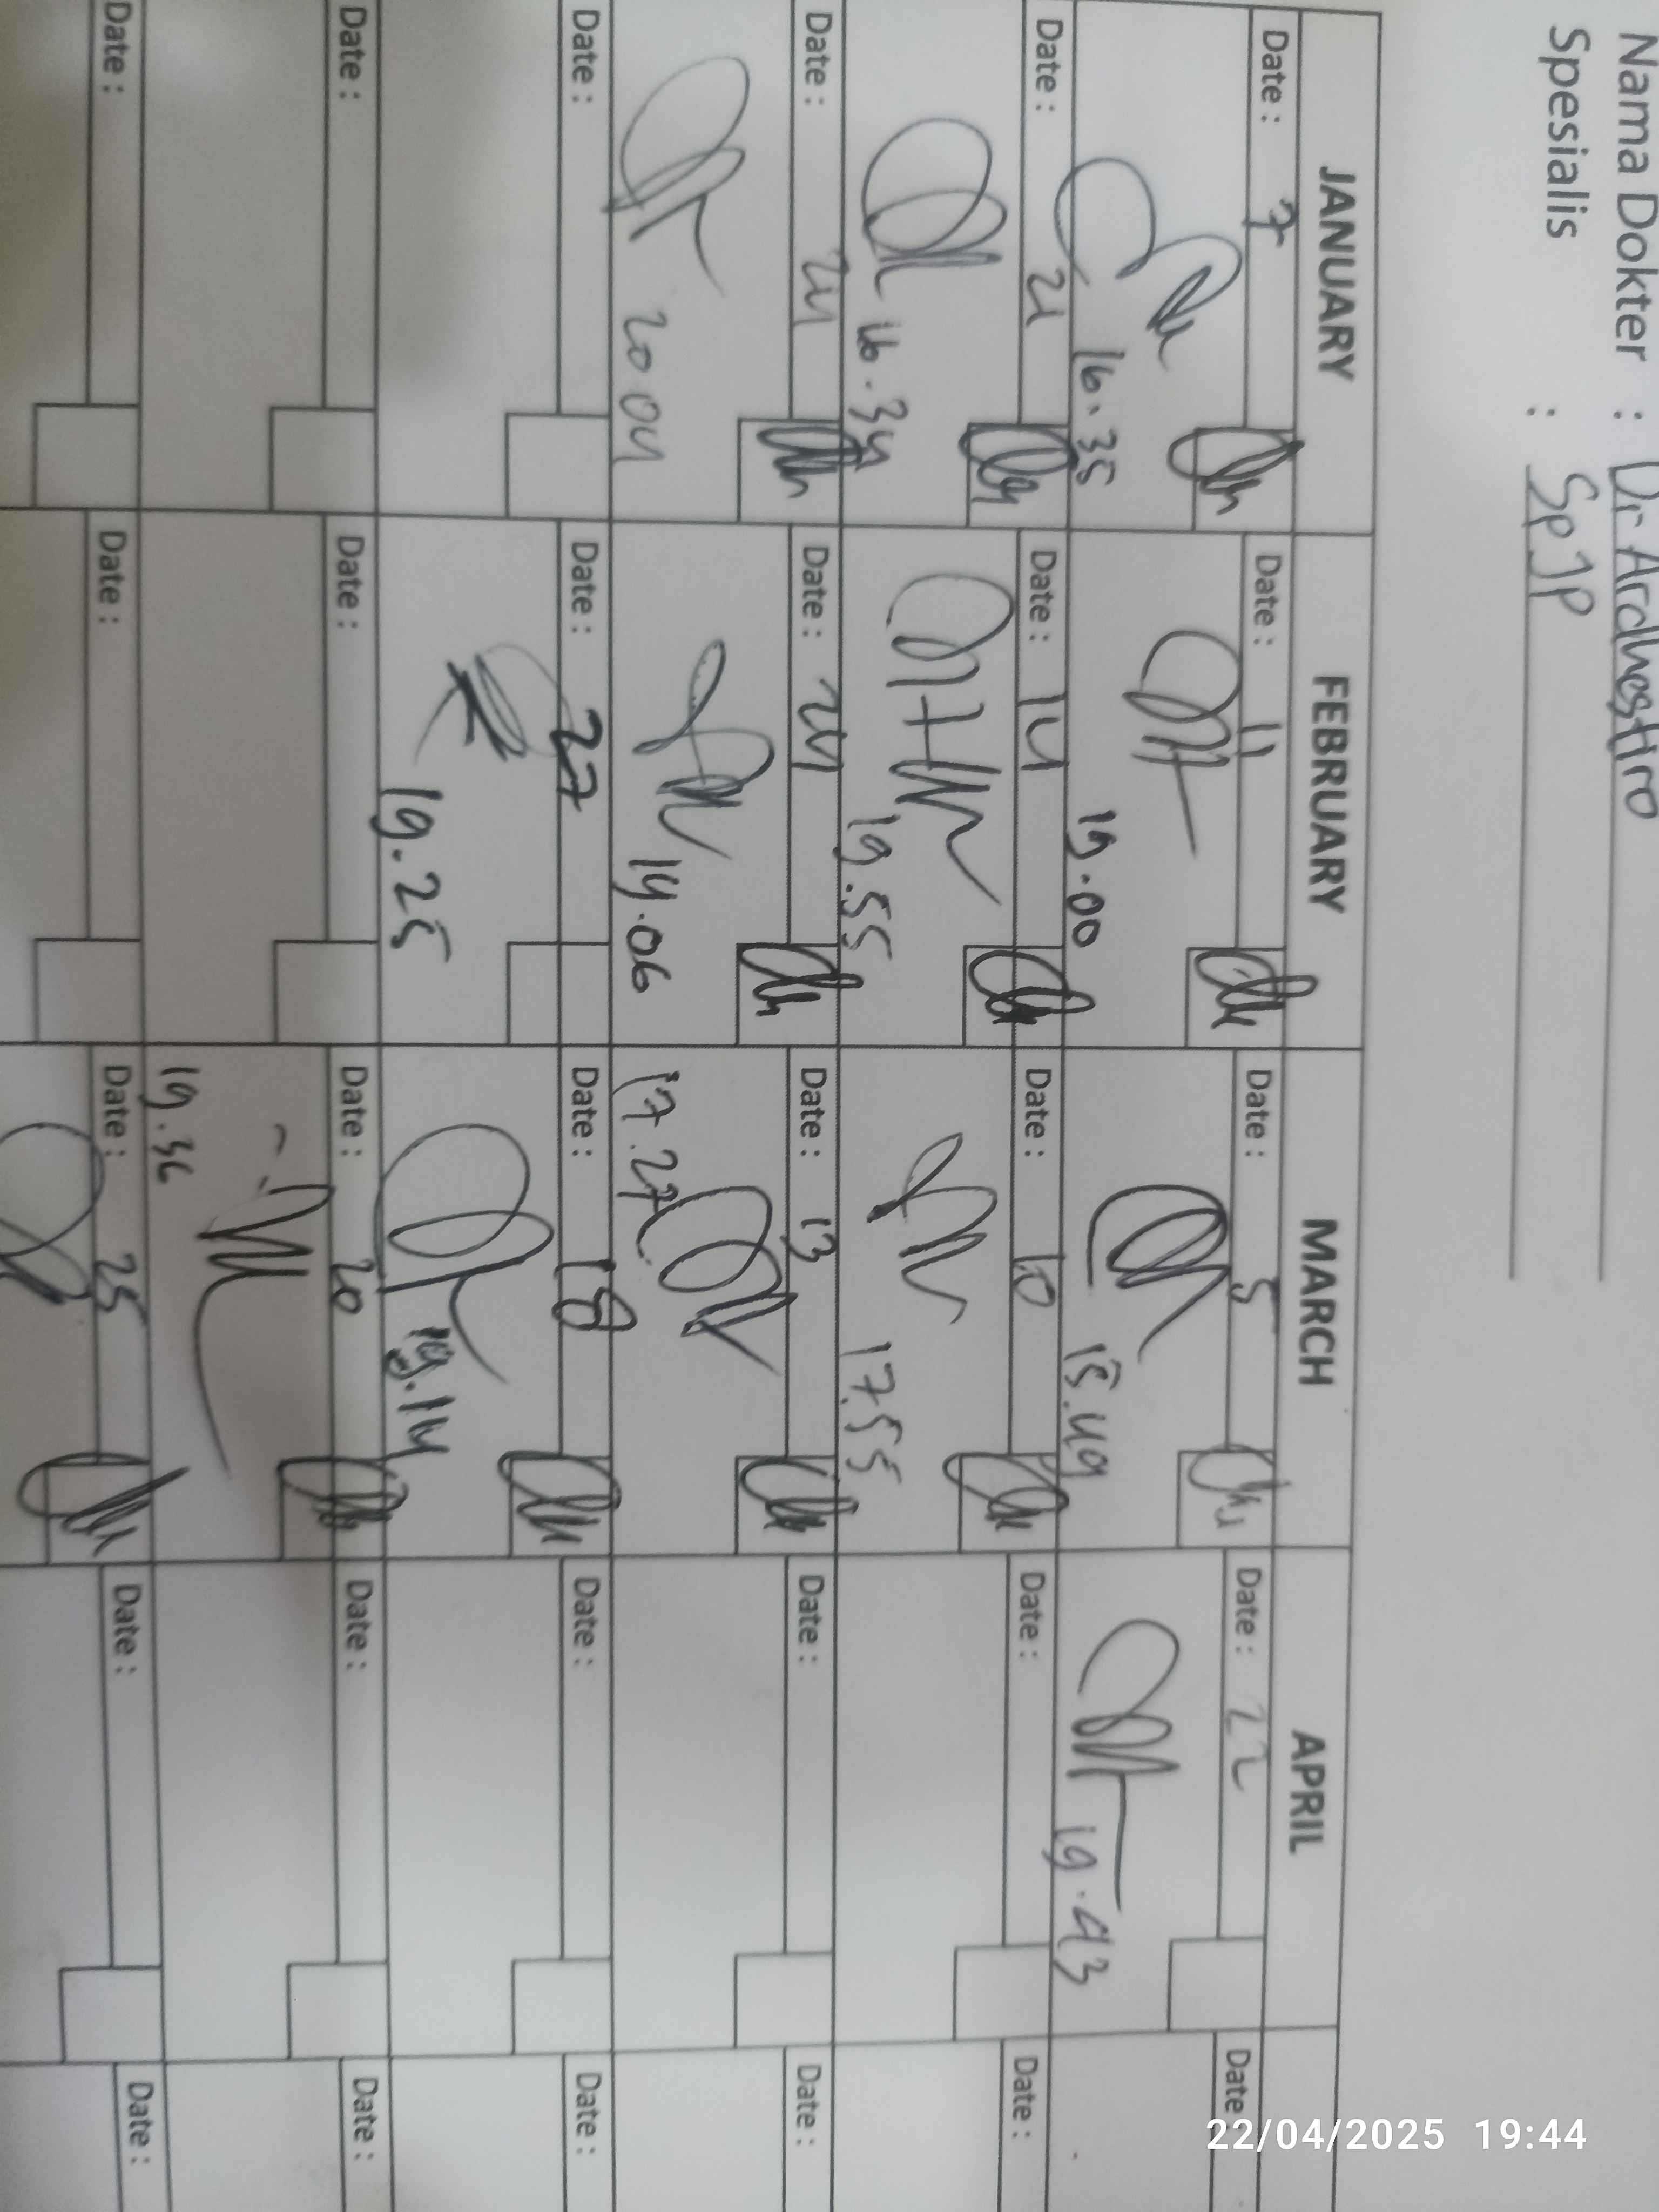 Nama Dokter : Dr Ardhestiro
Spesialis : SpJP
JANUARY FEBRUARY MARCH APRIL
Date : 7 Date : 11 Date : 5 Date : 22 Date :
16.35 19.00 15.49 19.43
Date : 21 Date : 14 Date : 10 Date : Date :
16.34 19.55 17.55
Date : 24 Date : 24 Date : 13 Date : Date :
20 04 14.06 17.27
Date : Date : 27 Date : 18 Date : Date :
19.25 19.14
Date : Date : Date : 20 Date : Date :
19.36
Date : Date : Date : 25 Date : Date :
22/04/2025 19:44